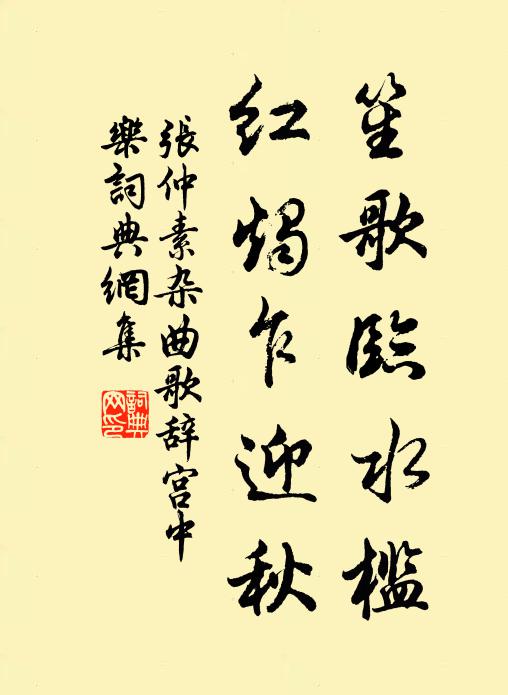 笙歌臨水檻
紅燭乍迎秋
張仲素杂曲歌辞宫中
樂詞典網集
詞典
网印